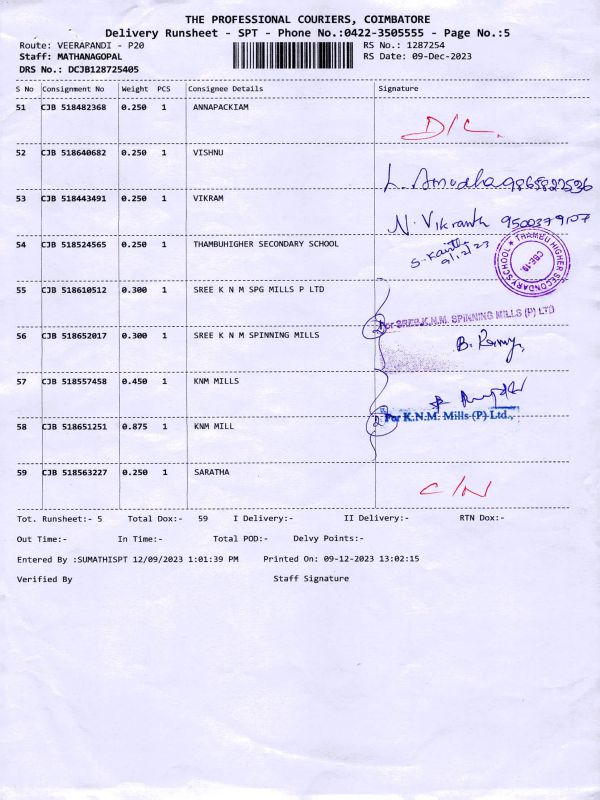 THE PROFESSIONAL COURIERS, COIMBATORE
Delivery Runsheet - SPT - Phone No.:0422-3505555 - Page No.:5
Route: VEERAPANDI - P20
RS No.: 1287254
Staff: MATHANAGOPAL
RS Date: 09-Dec-2023
DRS No.: DCJB128725405
S No Consignment No Weight PCS Consignee Details Signature
51 CJB 518482368 0.250 1 ANNAPACKIAM
D/C.
52 CJB 518640682 0.250 1 VISHNU
L. Amudha 9865822536
53 CJB 518443491 0.250 1 VIKRAM
N. Vikranth 9500379107
54 CJB 518524565 0.250 1 THAMBUHIGHER SECONDARY SCHOOL
9/12/23
THAMBU HIGHER SECONDARY SCHOOL
55 CJB 518610512 0.300 1 SREE K N M SPG MILLS P LTD
2
For SREE K.N.M. SPINNING MILLS (P) LTD
56 CJB 518652017 0.300 1 SREE K N M SPINNING MILLS
57 CJB 518557458 0.450 1 KNM MILLS
2
For K.N.M. Mills (P) Ltd.,
58 CJB 518651251 0.875 1 KNM MILL
59 CJB 518563227 0.250 1 SARATHA
C/N
Tot. Runsheet:- 5 Total Dox:- 59 I Delivery:- II Delivery:- RTN Dox:-
Out Time:- In Time:- Total POD:- Delvy Points:-
Entered By :SUMATHISPT 12/09/2023 1:01:39 PM Printed On: 09-12-2023 13:02:15
Verified By Staff Signature